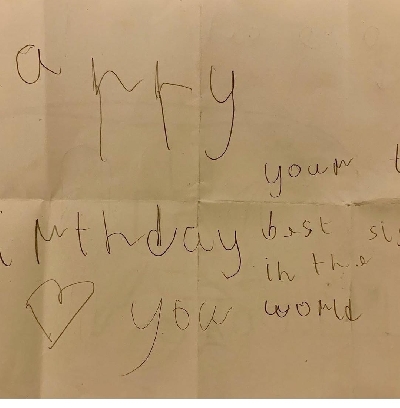 appy
birthday
♡ you
your t
best sis
in the
world